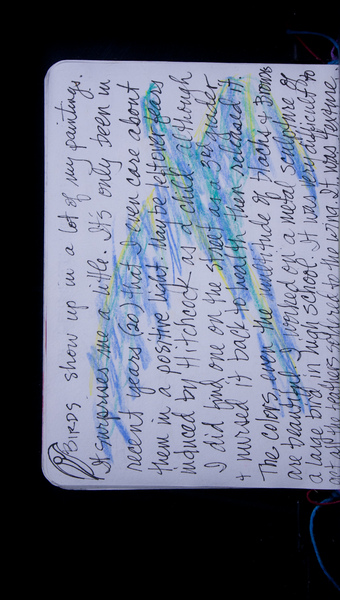 Birds show up in a lot of my paintings.
It surprises me a little. It's only been in
recent years (20) that I even care about
them in a positive light. Maybe
induced by Hitchcock as a child. Although
I did find one on the street as a 3rd grader
& nursed it back to health then released it.
The colors even the multitude of blacks & browns
are beautiful. I worked on a metal sculpture of
a large bird in high school. It was so difficult to
get all the feathers soldered to the wing. It was torture.